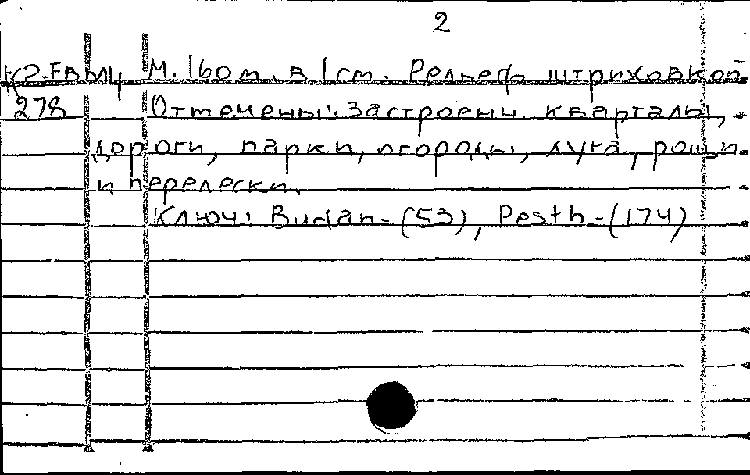 2
К2-Евы4 М. 160 m. в 1 cm. Рельеф штриховкой
278 Отмечены: застроенн. кварталы,
дороги, парки, огороды, луга, рощи
и перелески.
Ключ: Budan-(53), Pesth-(174)